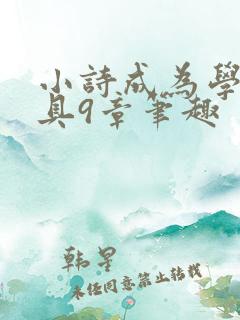 小詩成為學
具9章筆趣
韩星
未经同意禁止转载